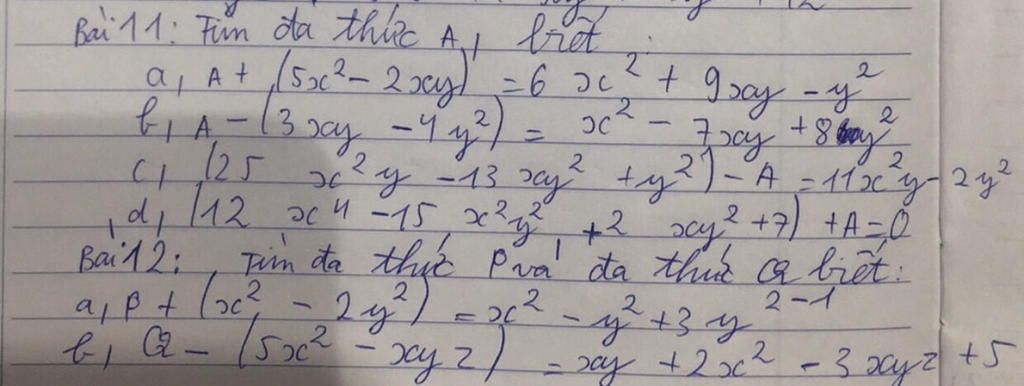 Bài 11: Tìm đa thức A, biết:
a, A + (5x² - 2xy) = 6x² + 9xy - y²
b, A - (3xy - 4y²) = x² - 7xy + 8y²
c, (25x²y - 13xy² + y²) - A = 11x²y - 2y²
d, (12x⁴ - 15x²y² + 2xy² + 7) + A = 0
Bài 12: Tìm đa thức P và đa thức Q biết:
a, P + (x² - 2y²) = x² - y² + 3y² - 1
b, Q - (5x² - xyz) = xy + 2x² - 3xyz + 5